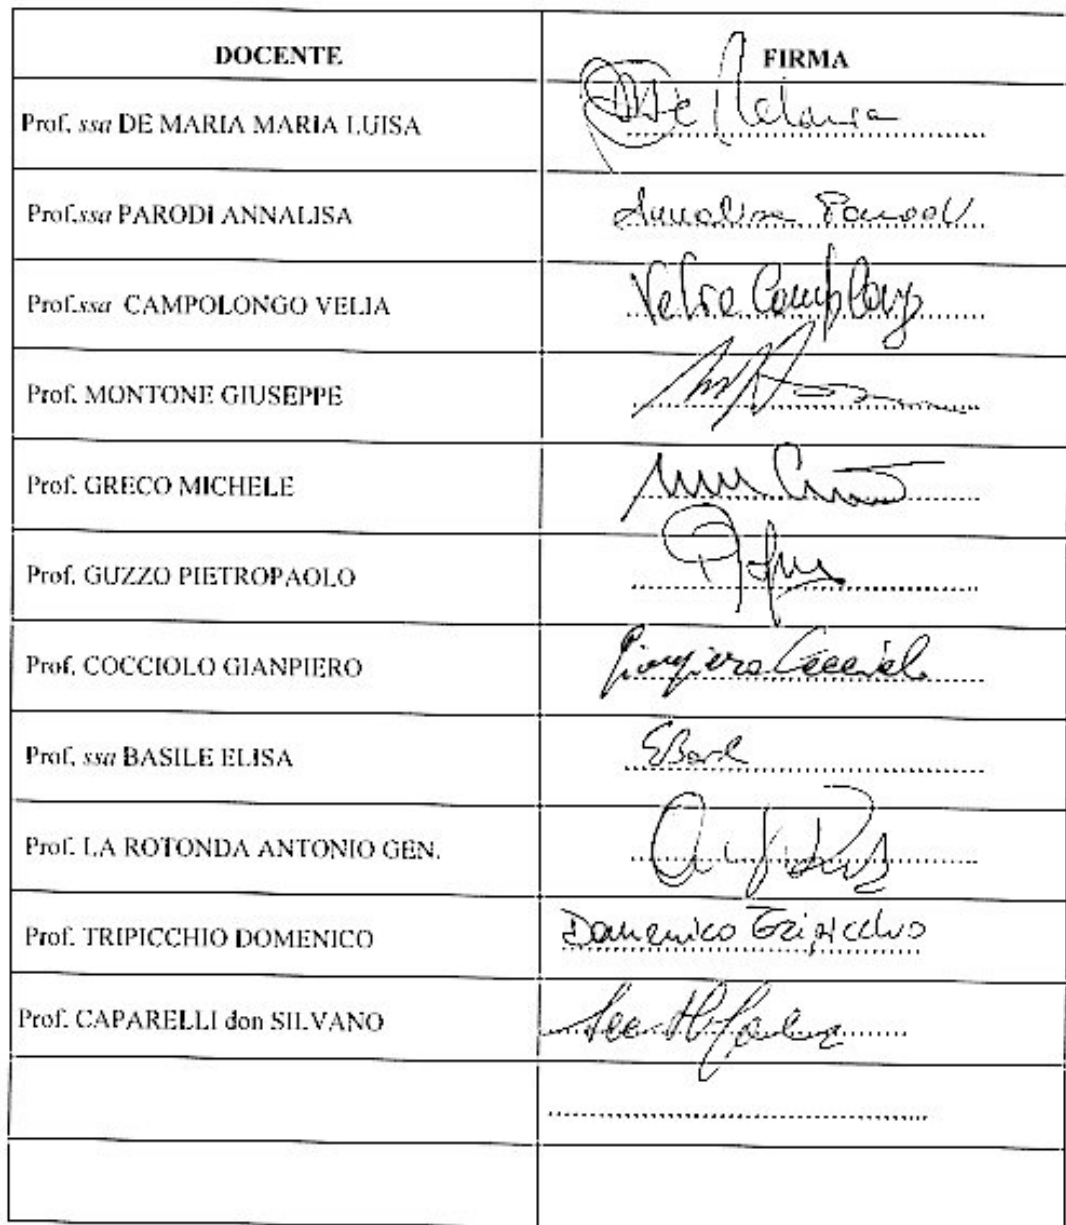 DOCENTE FIRMA
Prof. ssa DE MARIA MARIA LUISA De
Prof.ssa PARODI ANNALISA Annalisa Parodi
Prof.ssa CAMPOLONGO VELIA Velia
Prof. MONTONE GIUSEPPE
Prof. GRECO MICHELE
Prof. GUZZO PIETROPAOLO
Prof. COCCIOLO GIANPIERO Gianpiero
Prof. ssa BASILE ELISA
Prof. LA ROTONDA ANTONIO GEN.
Prof. TRIPICCHIO DOMENICO Domenico Tripicchio
Prof. CAPARELLI don SILVANO